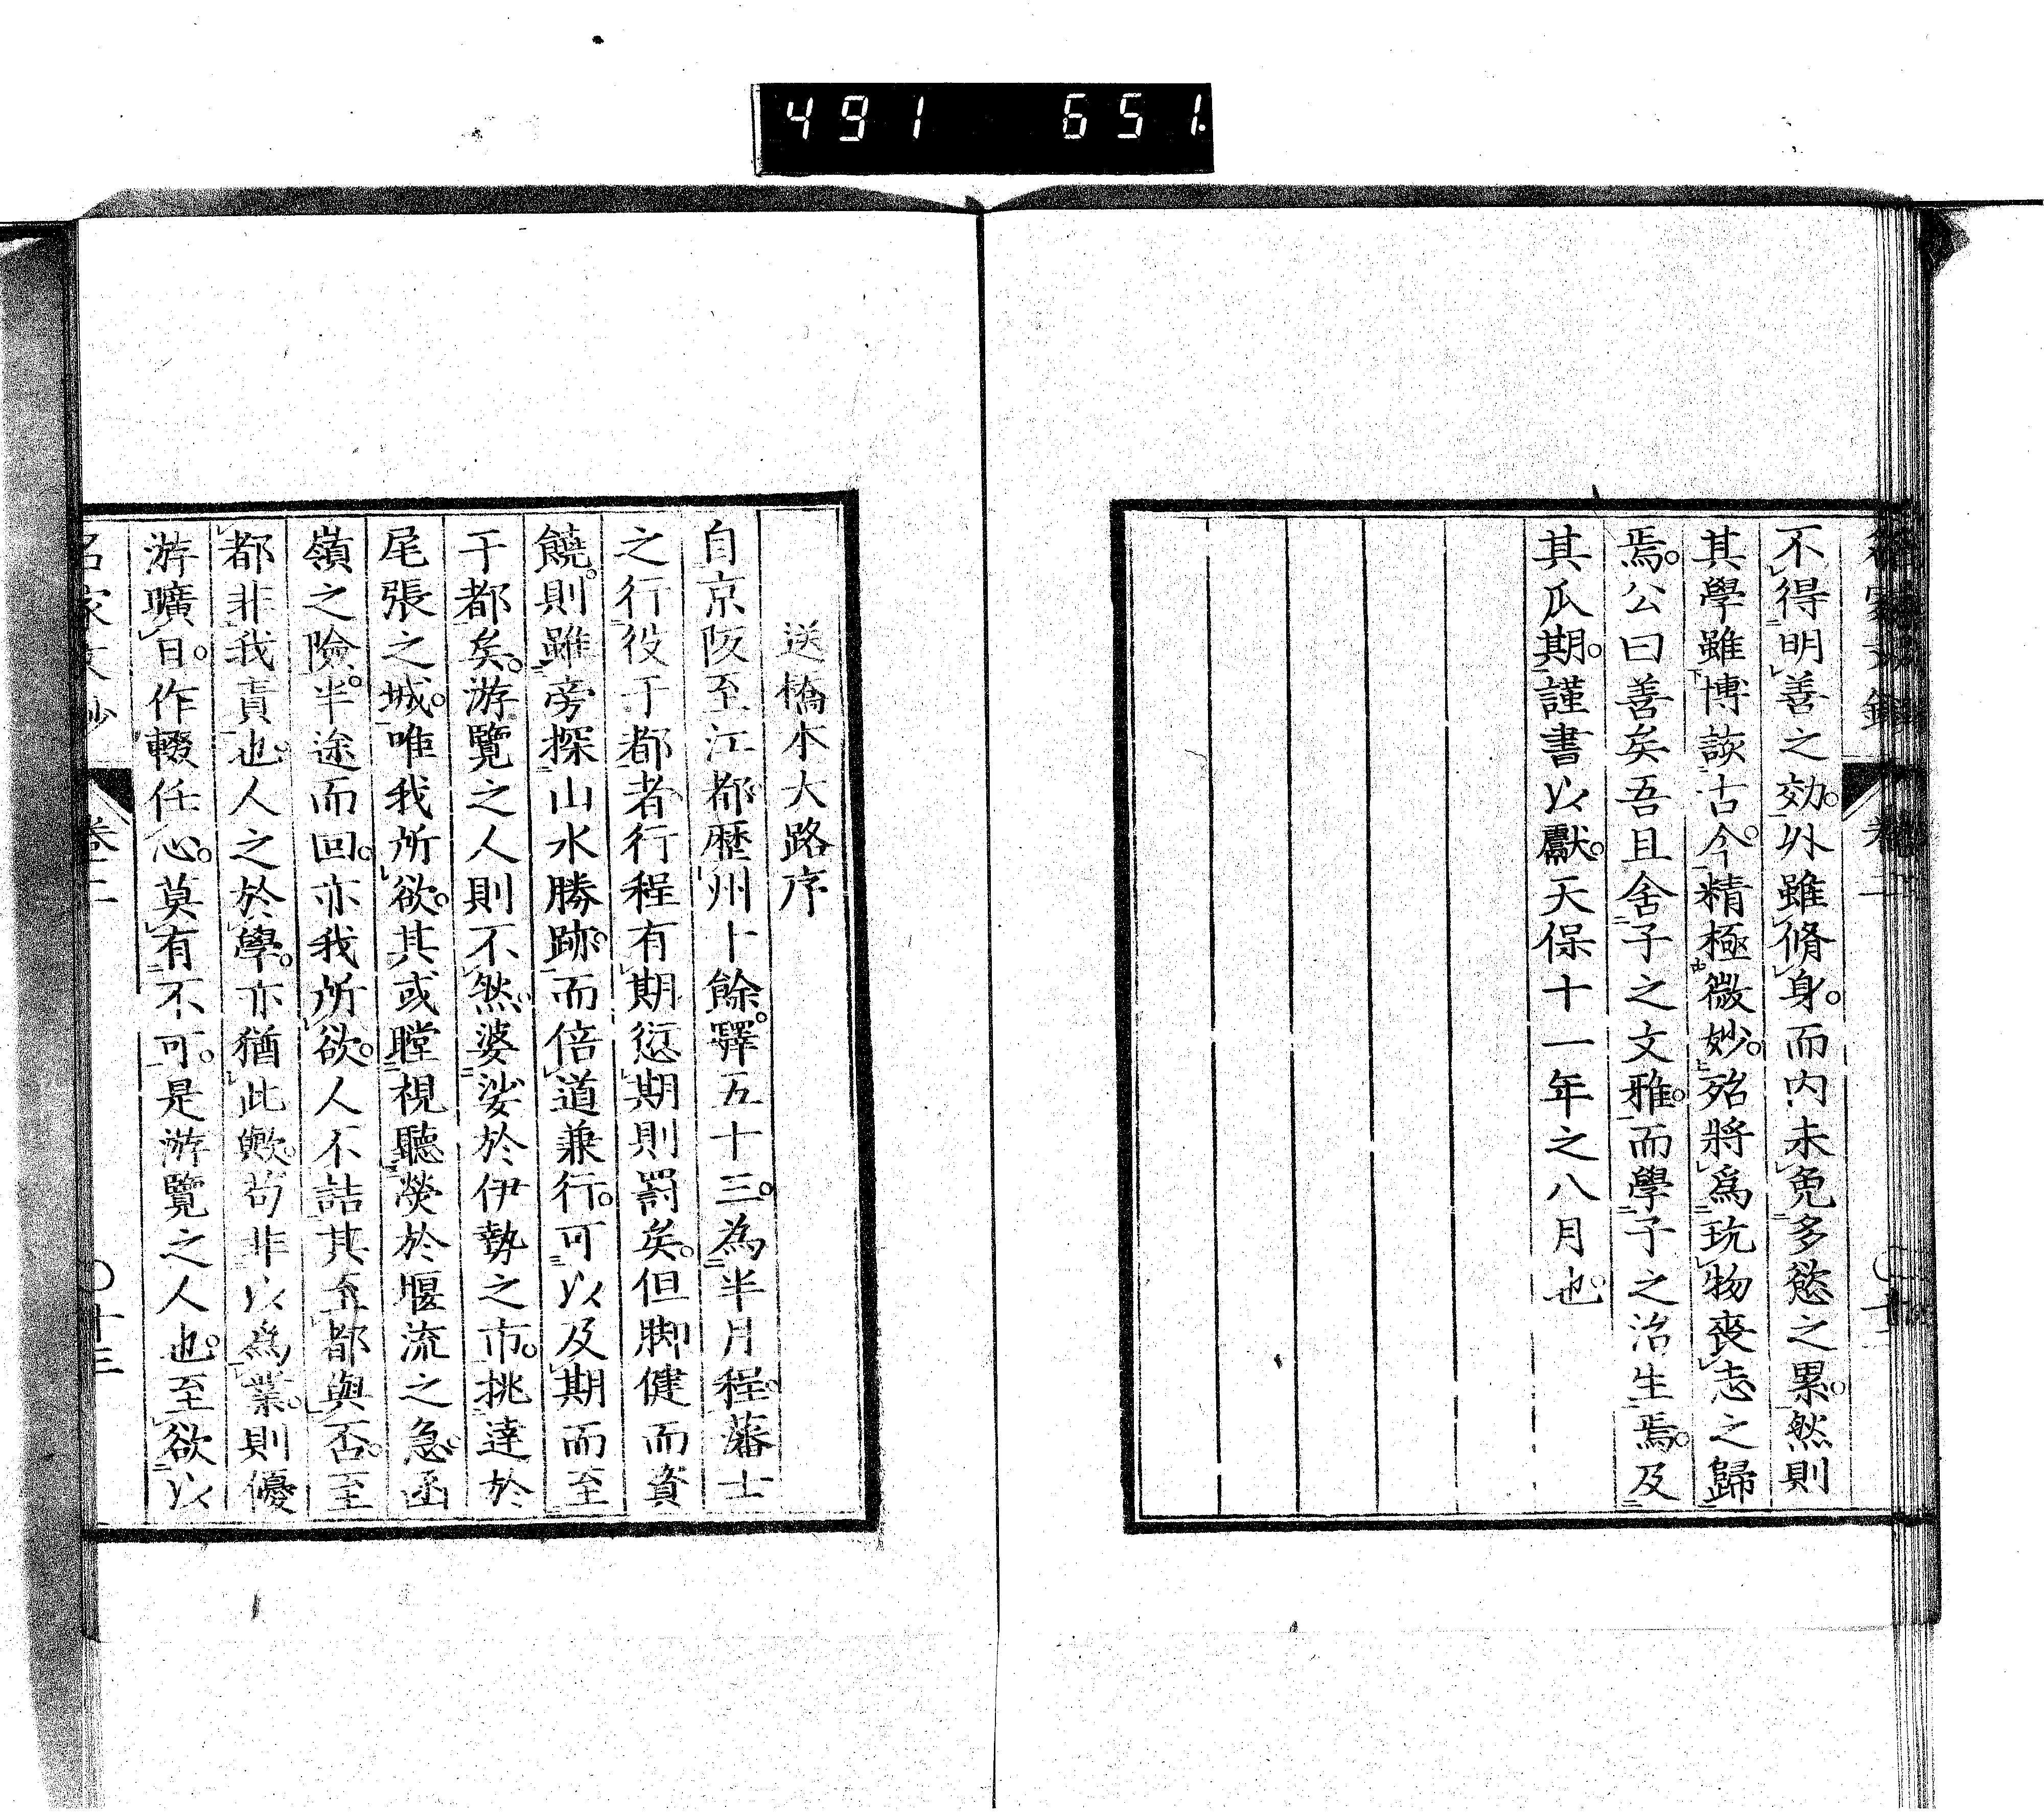 491 651
不得明善之効。外雖脩身。而内未免多慾之累。然則
其學雖博該古今。精極微妙。殆將爲玩物喪志之歸
焉。公曰善矣吾且舍子之文雅。而學子之治生焉。及
其瓜期。謹書以獻。天保十一年之八月也
送橋本大路序
自京阪至江都歷州十餘。驛五十三。為半月程。藩士
之行役于都者行程有期愆期則罰矣。但脚健而資
饒。則雖旁探山水勝跡。而倍道兼行。可以及期而至
于都矣。游覽之人則不然。婆娑於伊勢之市。挑達於
尾張之城。唯我所欲。其或瞠視聽熒於堰流之急。函
嶺之險。半途而回。亦我所欲。人不詰其至都與否。至
都非我責也。人之於學。亦猶此歟。苟非以爲業。則優
游曠日。作輟任心。莫有不可。是游覽之人也。至欲以
名家文抄 卷二 〇十三